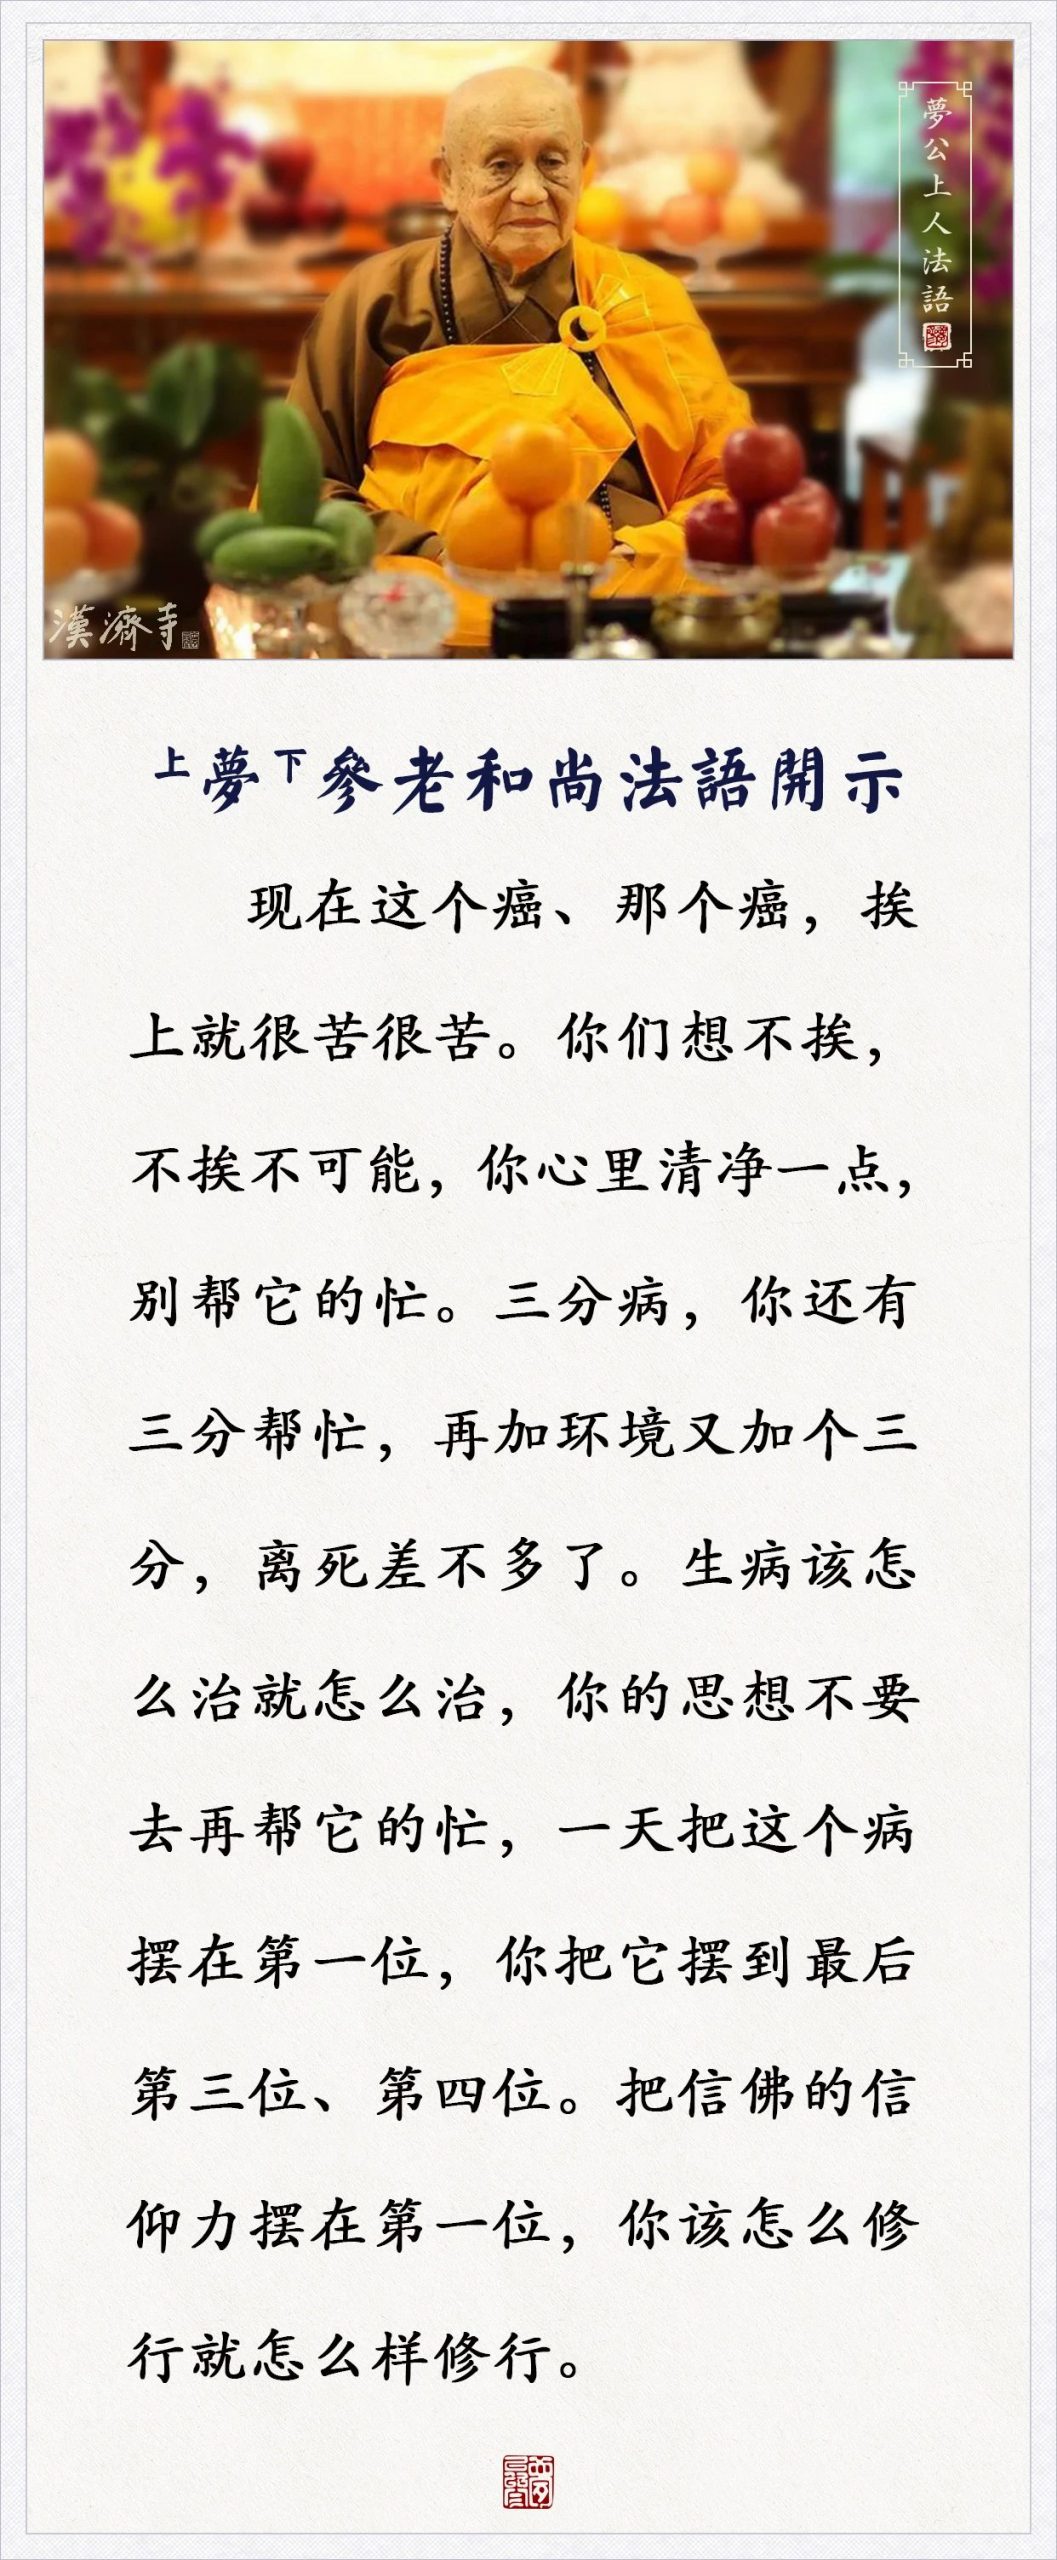 夢公上人法語
漢濟寺
上夢下參老和尚法語開示
现在这个癌、那个癌，挨
上就很苦很苦。你们想不挨，
不挨不可能，你心里清净一点，
别帮它的忙。三分病，你还有
三分帮忙，再加环境又加个三
分，离死差不多了。生病该怎
么治就怎么治，你的思想不要
去再帮它的忙，一天把这个病
摆在第一位，你把它摆到最后
第三位、第四位。把信佛的信
仰力摆在第一位，你该怎么修
行就怎么样修行。